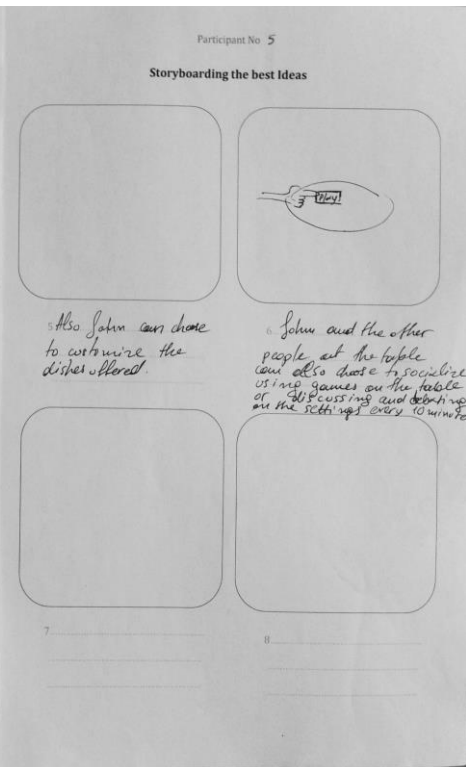 Participant No 5
Storyboarding the best Ideas
Play!
5 Also John can choose
to customize the
dishes offered.
6. John and the other
people at the table
can also choose to socialize
using games on the table
or discussing and debating
on the settings every 10 minutes
7
8